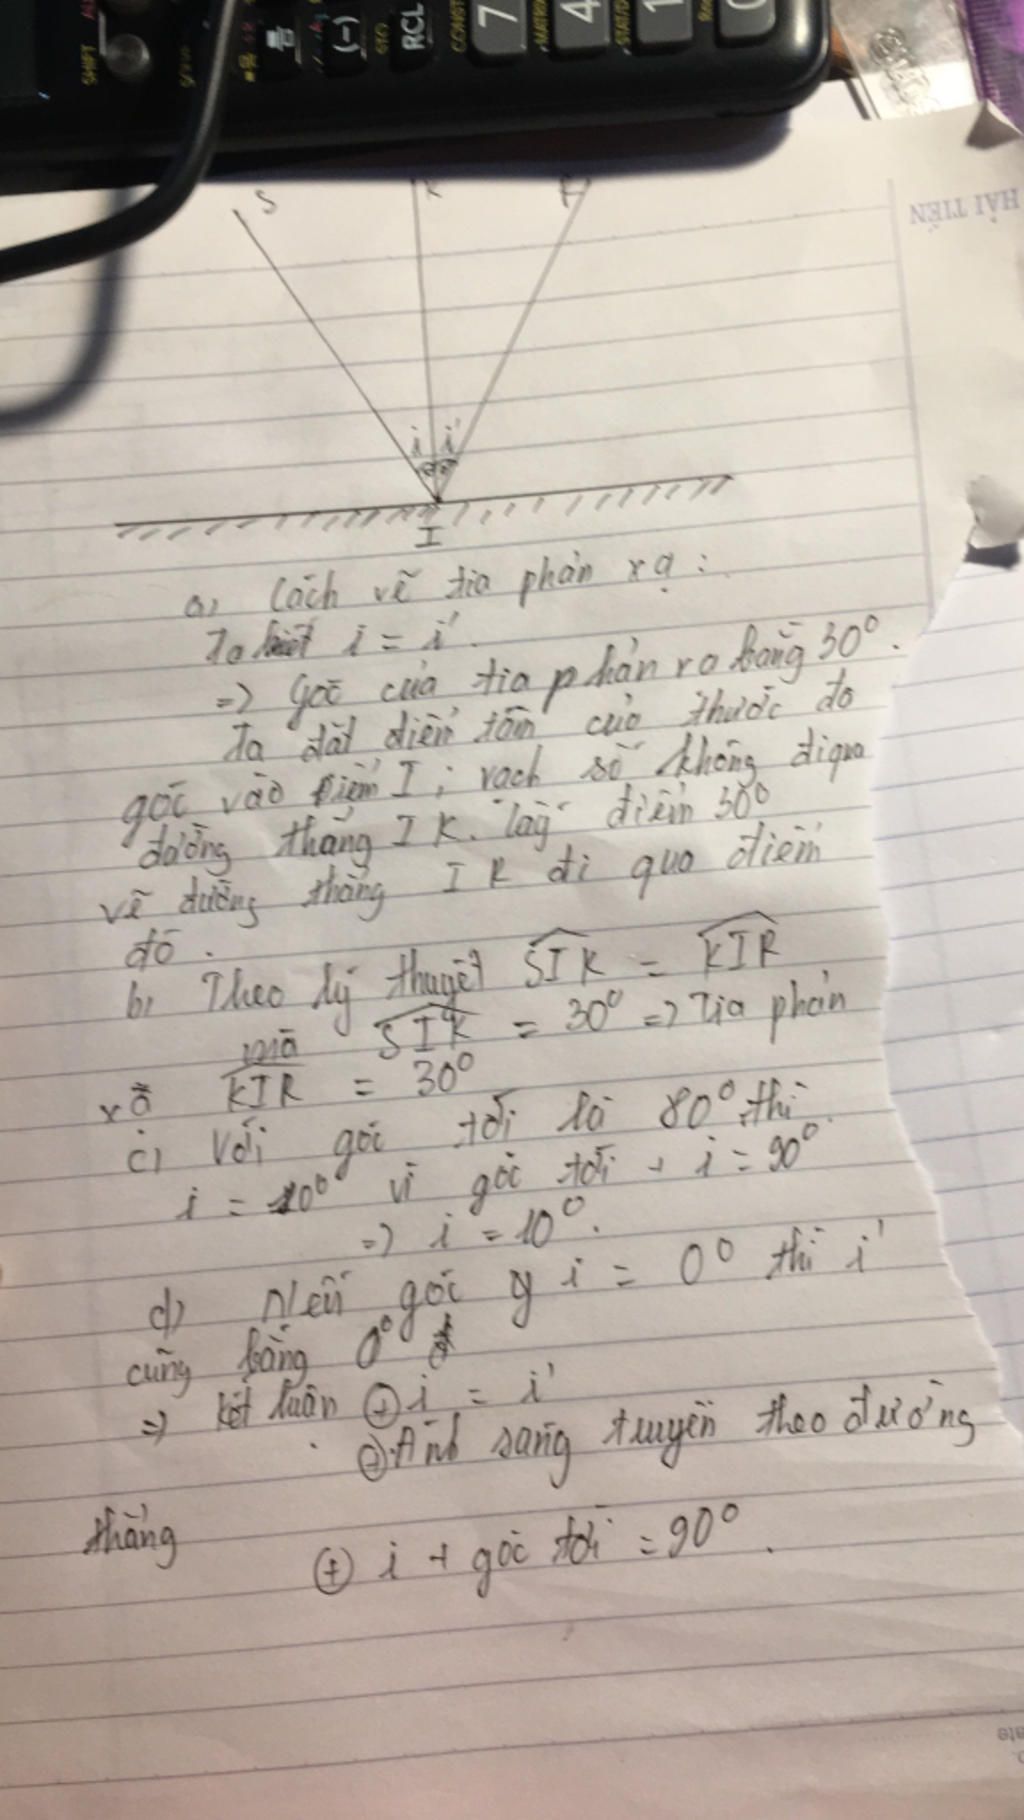 SHIFT
(-)
STO
RCL
CONST
7
4
1
HẢI TIẾN
S
K
R
i i'
I
a, Cách vẽ tia phản xạ:
Ta biết i = i'.
=> Góc của tia phản xạ bằng 30°.
Ta đặt điểm tâm của thước đo
góc vào điểm I; vạch số không đi qua
đường thẳng IK. lấy điểm 30°
vẽ đường thẳng IR đi qua điểm
đó.
b, Theo lý thuyết SIK = KIR
mà SIK = 30° => Tia phản
xạ KIR = 30°
c, Với góc tới là 80° thì
i = 10° vì góc tới + i = 90°
=> i = 10°.
d, Nếu góc i = 0° thì i'
cũng bằng 0°
=> kết luận + i = i'
+ Ánh sáng truyền theo đường
thẳng
+ i + góc tới = 90°.